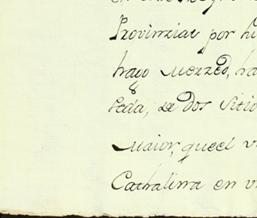 Provinzias por hi
hago Merzed, ha
Peda, de dos sitio
Maior, queel v
Cathalina en v